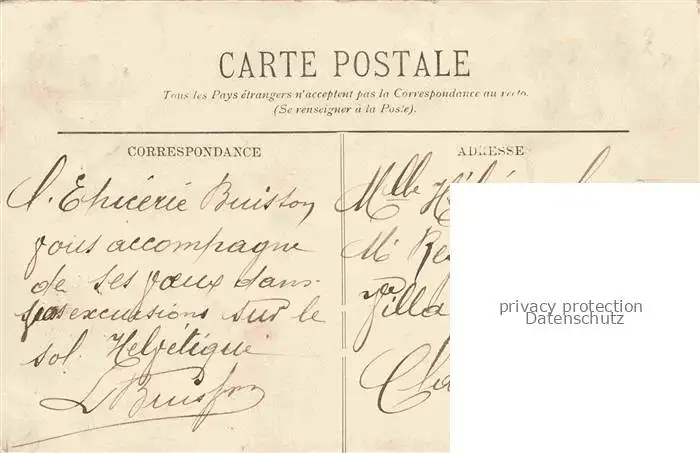 CARTE POSTALE
Tous les Pays étrangers n'acceptent pas la Correspondance au recto.
(Se renseigner à la Poste).
CORRESPONDANCE
ADRESSE
L'Epicérie Buisson
vous accompagne
de ses vœux dans
excursions sur le
sol Helvétique
L Buisson
Mlle
Mr
Villa
privacy protection
Datenschutz